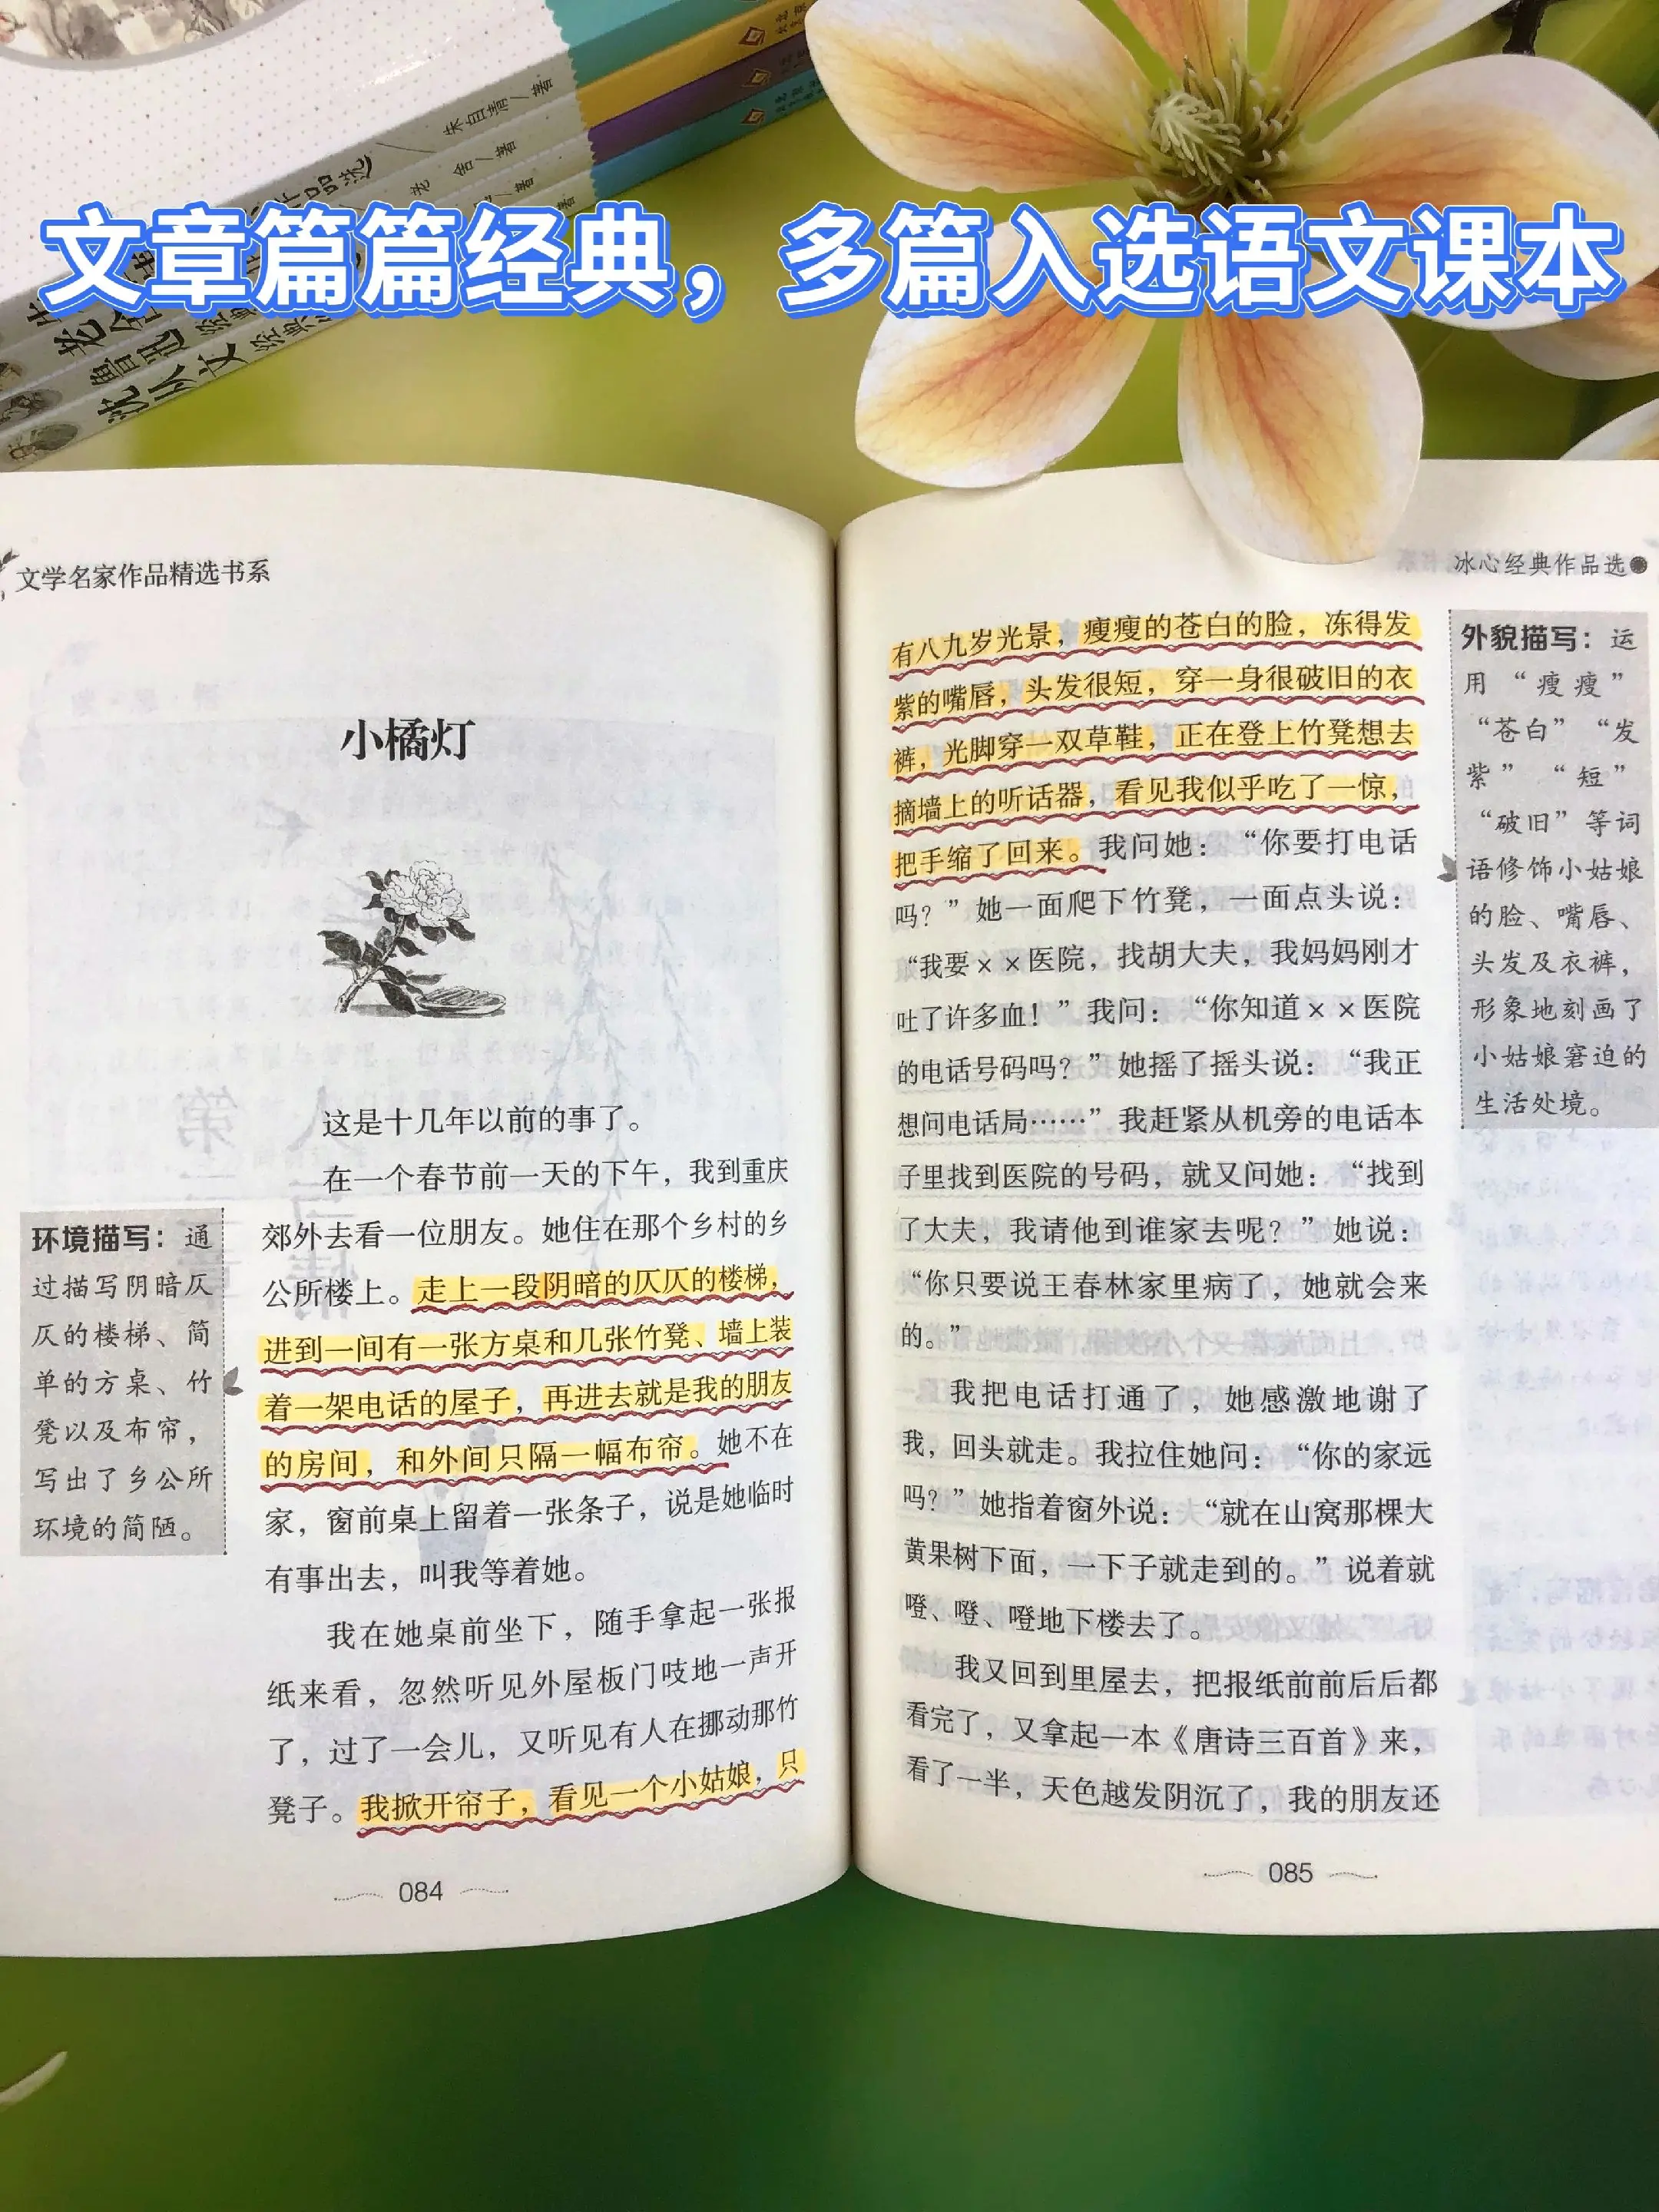 朱自清/著
老 舍/著
品选
老舍
鲁迅
沈从文
文章篇篇经典，多篇入选语文课本
文学名家作品精选书系
小橘灯
这是十几年以前的事了。
在一个春节前一天的下午，我到重庆
郊外去看一位朋友。她住在那个乡村的乡
公所楼上。走上一段阴暗的仄仄的楼梯，
进到一间有一张方桌和几张竹凳、墙上装
着一架电话的屋子，再进去就是我的朋友
的房间，和外间只隔一幅布帘。她不在
家，窗前桌上留着一张条子，说是她临时
有事出去，叫我等着她。
我在她桌前坐下，随手拿起一张报
纸来看，忽然听见外屋板门吱地一声开
了，过了一会儿，又听见有人在挪动那竹
凳子。我掀开帘子，看见一个小姑娘，只
环境描写：通
过描写阴暗仄
仄的楼梯、简
单的方桌、竹
凳以及布帘，
写出了乡公所
环境的简陋。
084
冰心经典作品选
有八九岁光景，瘦瘦的苍白的脸，冻得发
紫的嘴唇，头发很短，穿一身很破旧的衣
裤，光脚穿一双草鞋，正在登上竹凳想去
摘墙上的听话器，看见我似乎吃了一惊，
把手缩了回来。我问她：“你要打电话
吗？”她一面爬下竹凳，一面点头说：
“我要××医院，找胡大夫，我妈妈刚才
吐了许多血！”我问：“你知道××医院
的电话号码吗？”她摇了摇头说：“我正
想问电话局……”我赶紧从机旁的电话本
子里找到医院的号码，就又问她：“找到
了大夫，我请他到谁家去呢？”她说：
“你只要说王春林家里病了，她就会来
的。”
我把电话打通了，她感激地谢了
我，回头就走。我拉住她问：“你的家远
吗？”她指着窗外说：“就在山窝那棵大
黄果树下面，一下子就走到的。”说着就
噔、噔、噔地下楼去了。
我又回到里屋去，把报纸前前后后都
看完了，又拿起一本《唐诗三百首》来，
看了一半，天色越发阴沉了，我的朋友还
外貌描写：运
用“瘦瘦”
“苍白”“发
紫”“短”
“破旧”等词
语修饰小姑娘
的脸、嘴唇、
头发及衣裤，
形象地刻画了
小姑娘窘迫的
生活处境。
085